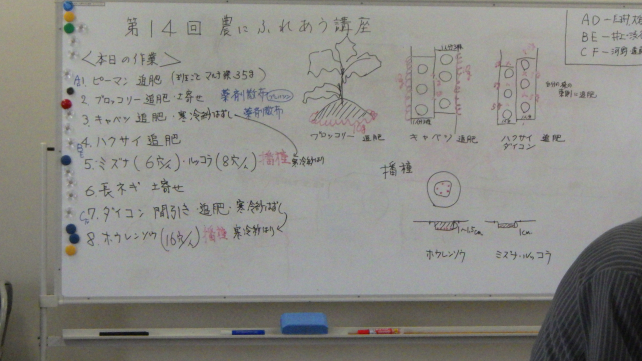 第14回 農にふれあう講座
<本日の作業>
1. ピーマン 追肥
2. ブロッコリー 追肥・土寄せ 薬剤散布
3. キャベツ 追肥・寒冷紗はずし 薬剤散布
4. ハクサイ 追肥
5. ミズナ(6穴/人)・ルッコラ(8穴/人) 播種 寒冷紗はり
6. 長ネギ 土寄せ
7. ダイコン 間引き・追肥・寒冷紗はずし
8. ホウレンソウ(16穴/人) 播種 寒冷紗はり
ブロッコリー 追肥
キャベツ 追肥
ハクサイ
ダイコン
追肥
播種
1〜1.5cm
1cm
ホウレンソウ
ミズナ・ルッコラ
AD
BE
CF